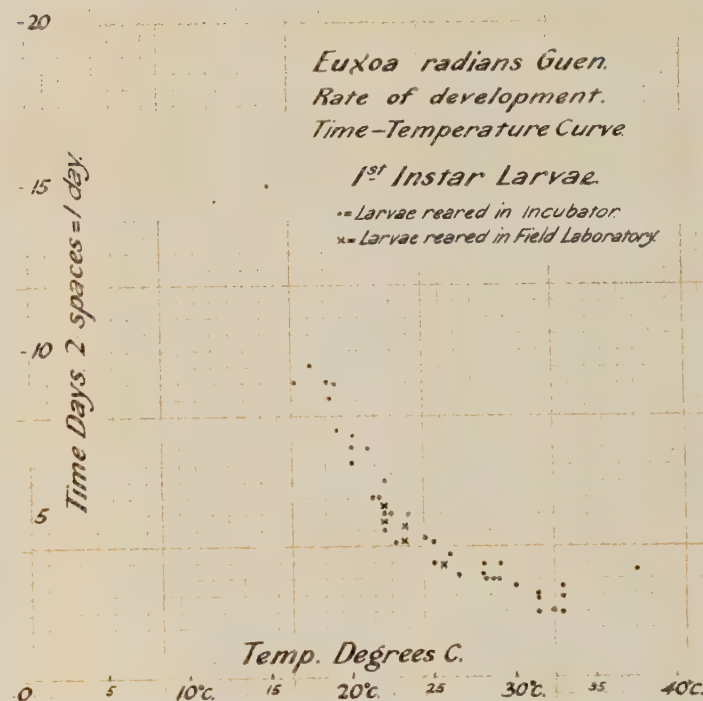 20
Euxoa radians Guen.
Rate of development.
Time-Temperature Curve.
1st Instar Larvae.
•= Larvae reared in Incubator.
x= Larvae reared in Field Laboratory.
15
Time Days. 2 spaces=1 day.
10
5
Temp. Degrees C.
0 5 10°C. 15 20°C. 25 30°C. 35 40°C.